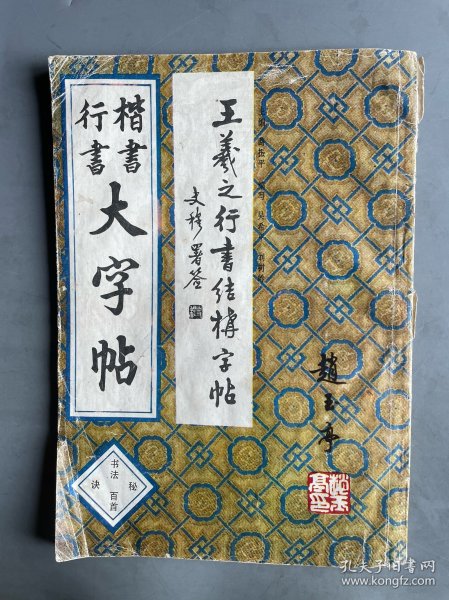 楷書
行書
大字帖
王羲之行書结構字帖
文稼署签
书法
百首
秘
决
趙玉亭
孔夫子旧书网
www.kongfz.com